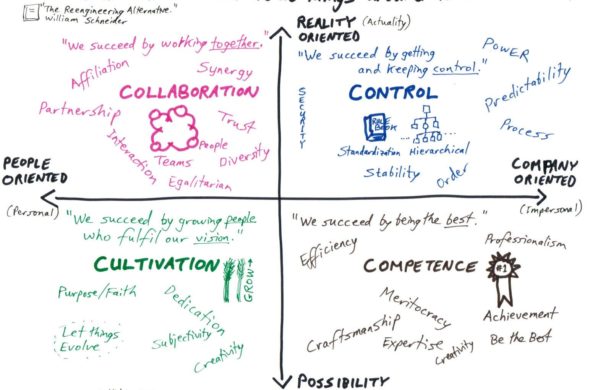 "The Reengineering Alternative."
William Schneider
REALITY (Actuality)
ORIENTED
"We succeed by working together."
Affiliation
Synergy
COLLABORATION
Partnership
Trust
Interaction
People
Diversity
Teams
Egalitarian
"We succeed by getting
and keeping control."
POWER
SECURITY
CONTROL
Predictability
RULE
BOOK
Process
Standardization
Hierarchical
Stability
Order
PEOPLE
ORIENTED
(Personal)
COMPANY
ORIENTED
(Impersonal)
"We succeed by growing people
who fulfil our vision."
CULTIVATION
GROW
Purpose/Faith
Dedication
Let things
Evolve
Subjectivity
Creativity
"We succeed by being the best."
Efficiency
Professionalism
COMPETENCE
#1
Meritocracy
Craftsmanship
Expertise
Creativity
Achievement
Be the Best
POSSIBILITY